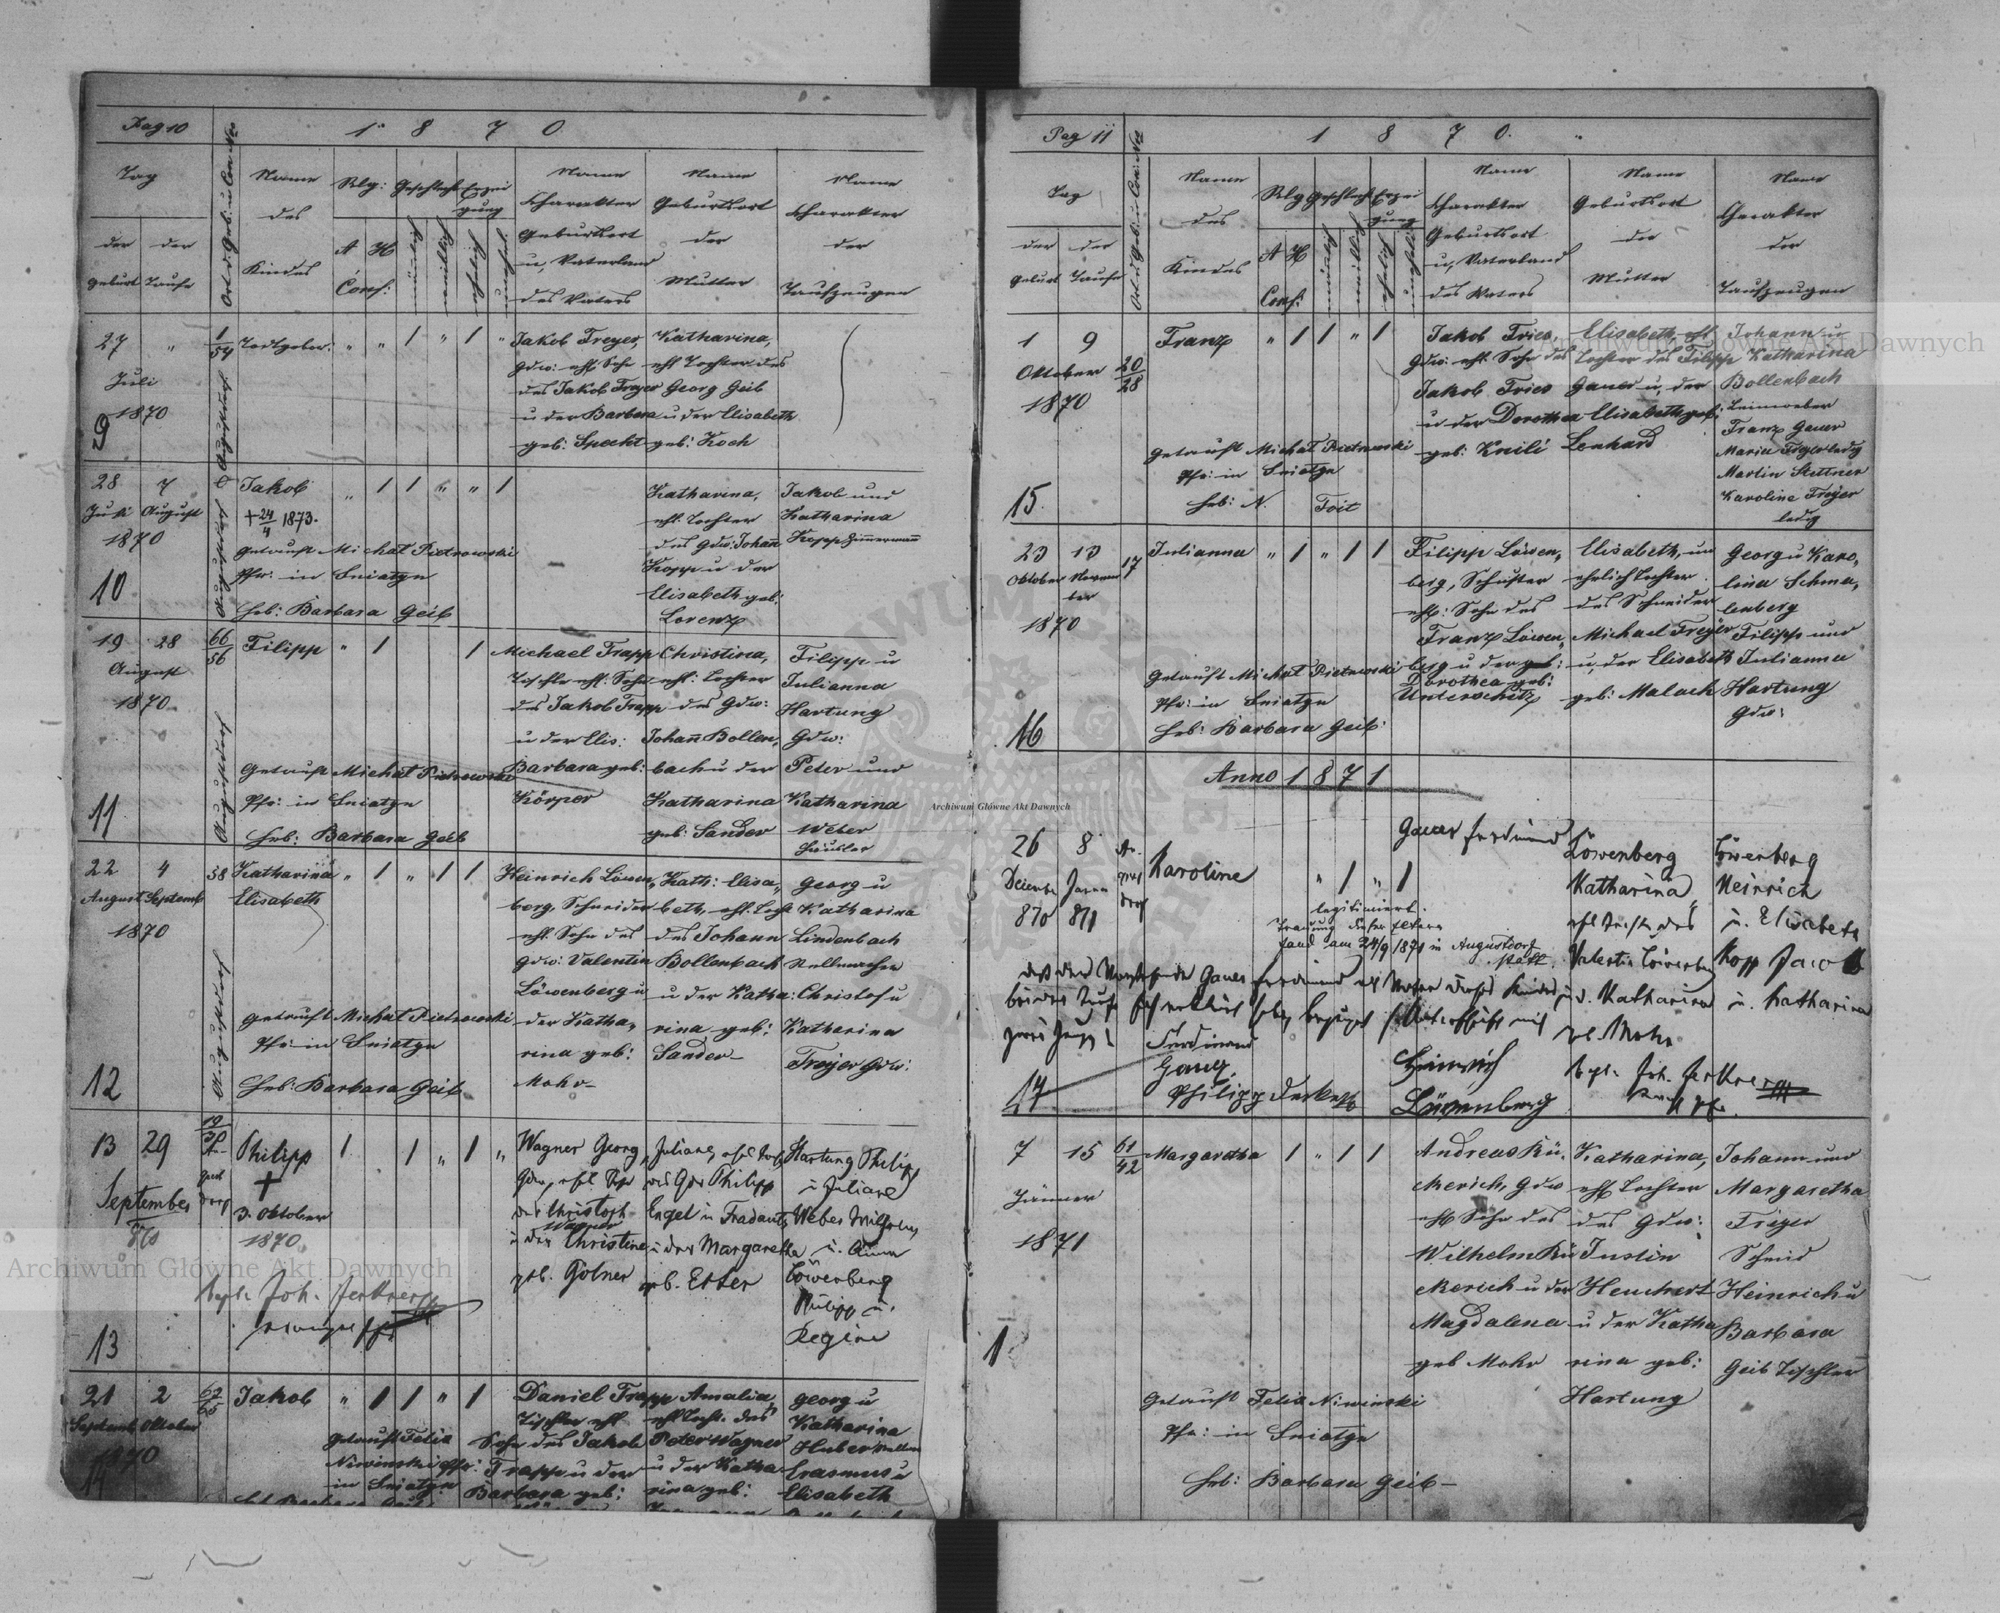 Pag 10
1 8 7 0
Tag
der Geburt
der Taufe
Ort d. Geb: u Con Nro
Name
des
Kindes
Relg:
A H
Conf:
Geschlecht
männlich
weiblich
Erzeugung
ehelich
unehel.
Name
Charakter
Geburtsort
u, Vaterland
des Vaters
Name
Geburtsort
der
Mutter
Name
Charakter
der
Taufzeugen
27 " 1/54 Todtgebor. " " 1 " 1 "
Juli
1870
9
Augustdorf
Jakob Freyer,
Gdw: ehl Sohn
des Jakob Freyer
u der Barbara
geb: Specht
Katharina,
ehl Tochter des
Georg Geib
u der Elisabeth
geb: Koch
28 7 8 Jakob " 1 1 " " 1
Juli August
1870
10
Augustdorf
+ 24/4 1873.
Getauft Michał Pietrowski
Pfr: in Sniatyn
Heb: Barbara Geib
Katharina,
ehl. Tochter
des Gdw: Johañ
Kopp u der
Elisabeth geb:
Lorenz
Jakob und
Katharina
Kopp Zimmermann
19 28 66/56 Filipp " 1 1
August
1870
11
Augustdorf
Getauft Michał Pietrowski
Pfr: in Sniatyn
Heb: Barbara Geib
Michael Trapp
Tischler ehl: Sohn
des Jakob Trapp
u der Elis:
Barbara geb:
Körper
Christina,
ehl: Tochter
des Gdw:
Johañ Bollen,
bach u der
Katharina
geb: Sander
Filipp u
Julianna
Hartung
Gdw:
Peter und
Katharina
Weber
Häusler
22 4 58 Katharina " 1 " 1 1
August Septemb
1870
12
Augustdorf
Elisabeth
Getauft Michał Pietrowski
Pfr: in Sniatyn
Heb: Barbara Geib
Heinrich Löwen,
berg, Schneider
ehl. Sohn des
Gdw: Valentin
Löwenberg u
der Katha,
rina geb:
Mohr
Kath: Elisa,
beth, ehl. Tocht
des Johann
Bollenbach
u der Katha:
rina geb:
Sander
Georg u
Katharina
Lindenbach
Stellmacher
Christof u
Katharina
Freyer Gdw:
13 29 Philipp 1 1 " 1 "
September
870
13
+
3. Oktober
1870
Wagner Georg,
Gdw, ehl Sohn
des Christoph
Wagner
u der Christine
geb. Golner
Juliane, ehel Tocht
des Gdw Philipp
Engel in Fradautz
u der Margaretha
geb. Etter
Hartung Philipp
u Juliane
Weber Wilhelm
u. Anna
Löwenberg
Philipp u.
Regine
21 2 Jakob " 1 1 " 1
Septemb Oktober
1870
14
Getauft Felix
Niwinski Pfr:
in Sniatyn
Daniel Trapp
Tischler ehl
Sohn des Jakob
Trapp u der
Barbara geb:
Amalia,
ehl Tocht. des
Peter Wagner
u der Katha
rina geb:
Georg u
Katharina
Huber
Erasmus u
Elisabeth
Pag 11
1 8 7 0.
Tag
der Geburt
der Taufe
Ort d. Geb: u Con Nro
Name
des
Kindes
Relg
A H
Conf:
Geschlecht
männlich
weiblich
Erzeugung
ehelich
unehelich
Name
Charakter
Geburtsort
u, Vaterland
des Vaters
Name
Geburtsort
der
Mutter
Name
Charakter
der
Taufzeugen
1 9 20/28 Franz " 1 1 " 1
Oktober
1870
15.
Getauft Michał Pietrowski
Pfr: in Sniatyn
Heb: N. Toit
Jakob Fries
Gdw: ehl. Sohn des
Jakob Fries
u der Dorothea
geb: Knili
Elisabeth, ehl
Tochter des Filipp
Gauer u, der
Elisabeth geb:
Lenhard
Johann u
Katharina
Bollenbach
Leinweber
Franz Gauer
Maria Freyer ledig
Martin Stettner
Karoline Freyer
ledig
23 13 17 Julianna " 1 " 1 1
Oktober November
1870
16
Getauft Michał Pietrowski
Pfr: in Sniatyn
Heb: Barbara Geib
Filipp Löwen,
berg, Schuster
ehl: Sohn des
Franz Löwen,
berg u der geb:
Dorothea geb:
Unterschütz
Elisabeth, un
ehrlich Tochter
des Schneider
Michael Freyer
u, der Elisabeth
geb: Malach
Georg u Karo,
lina Schma,
lenberg
Filipp und
Julianna
Hartung
Gdw:
Anno 1871
26 8 Karoline " 1 " 1
Dezember Janner
870 871
17
legitimiert.
Trauung dieser Eltern
fand am 24/9 1871 in Augustdorf
statt.
Gauer Ferdinand
Löwenberg
Katharina,
ehl Tocht des
Valentin Löwenberg
u. d. Katharina
geb. Mohr
Löwenberg
Heinrich
u. Elisabeth
Kopp Jacob
u. Katharina
Ferdinand
Gauer
Heinrich
Löwenberg
7 15 61/42 Margaretha 1 " 1 1
Jänner
1871
1
Getauft Felix Niwinski
Pfr: in Sniatyn
Heb: Barbara Geib
Andreas Kü,
merich, Gdw
ehl Sohn des
Wilhelm Kü
merich u der
Magdalena
geb Mohr
Katharina,
ehl Tochter
des Gdw:
Justin
Heuchert
u der Katha
rina geb:
Hartung
Johann und
Margaretha
Freyer
Schmid
Heinrich u
Barbara
Geib Tischler
Archiwum Główne Akt Dawnych
Archiwum Główne Akt Dawnych
Archiwum Główne Akt Dawnych